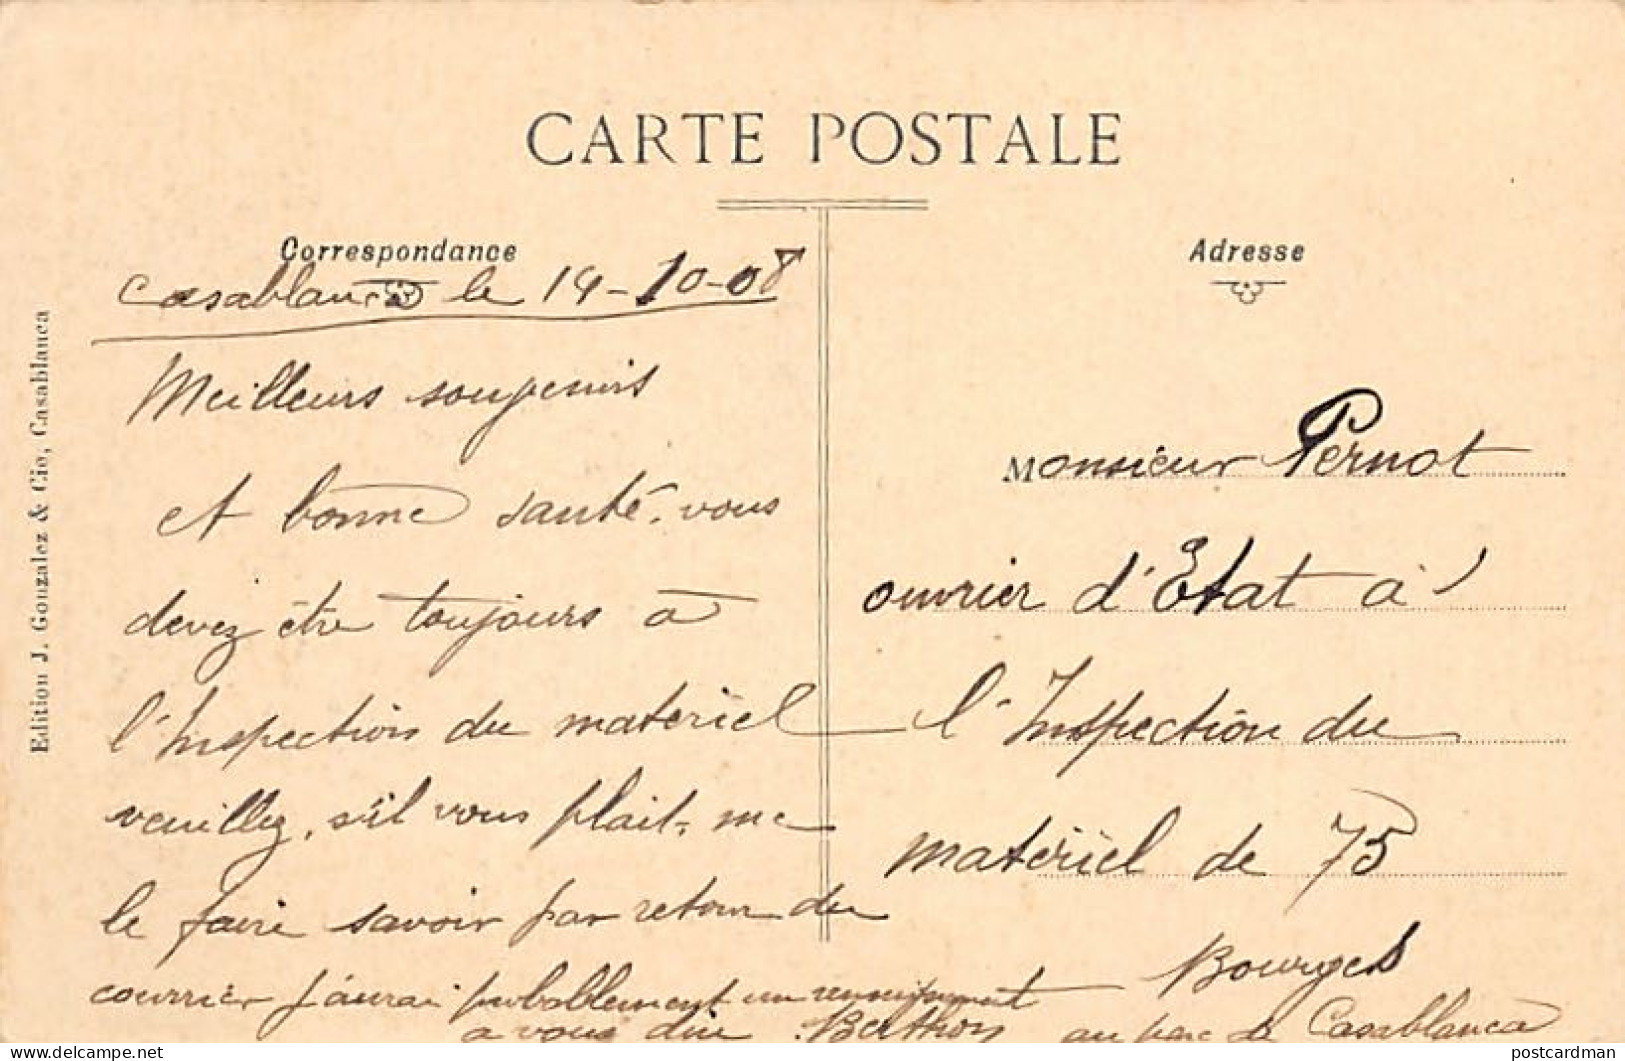 CARTE POSTALE
Correspondance
Casablanca le 14-10-08
Meilleurs souvenirs
et bonne santé. vous
devez être toujours à
l'Inspection du matériel
veuillez, s'il vous plait, me
le faire savoir par retour du
courrier j'aurai probablement un renseignement
a vous dire Berthon au parc de Casablanca
Adresse
Monsieur Pernot
ouvrier d'Etat à
l'Inspection du
matériel de 75
Bourges
Edition J. Gonzalez & Cie, Casablanca
postcardman